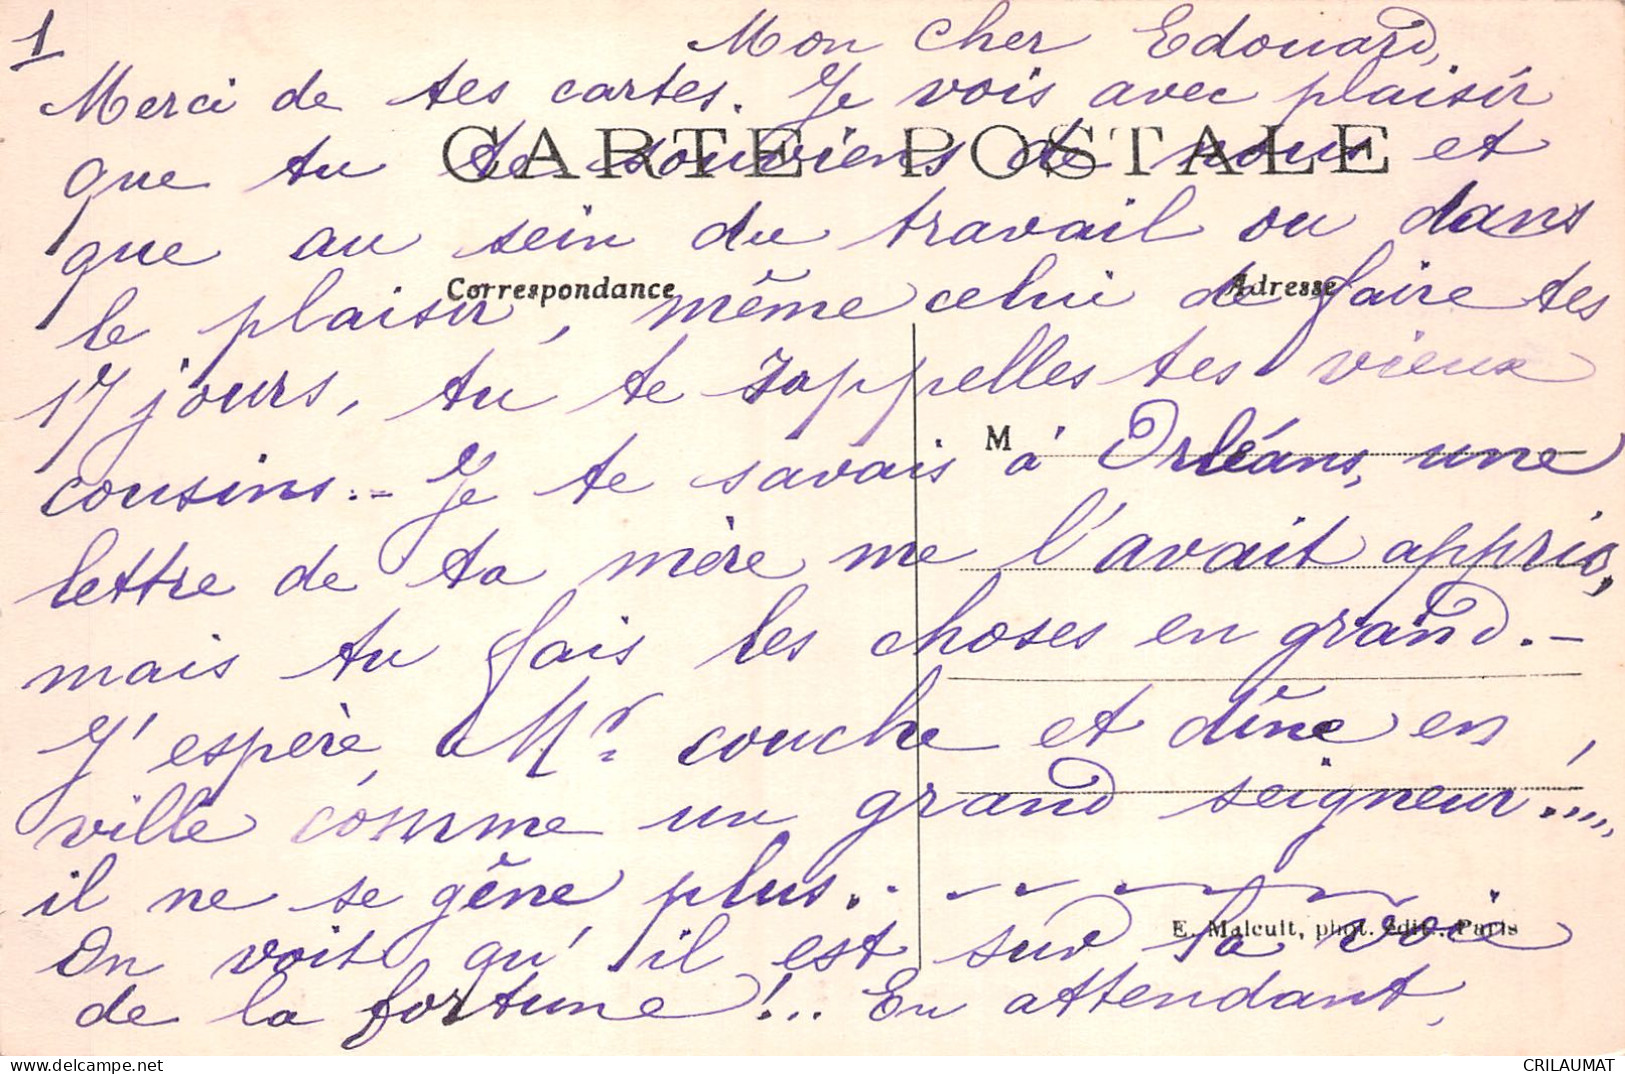 1
Mon cher Edouard,
Merci de tes cartes. Je vois avec plaisir
CARTE POSTALE
que tu te souviens de nous et
que au sein du travail ou dans
Correspondance Adresse
le plaisir, même celui de faire tes
17 jours, tu te rappelles tes vieux
M
cousins.- Je te savais à Orléans, une
lettre de ta mère me l'avait appris,
mais tu fais les choses en grand.-
J'espère, Mr couche et dîne en
ville comme un grand seigneur....,
il ne se gêne plus.
E. Malcuit, phot. édit., Paris
On voit qu'il est sur la voie
de la fortune!... En attendant,
CRILAUMAT
https://www.delcampe.net